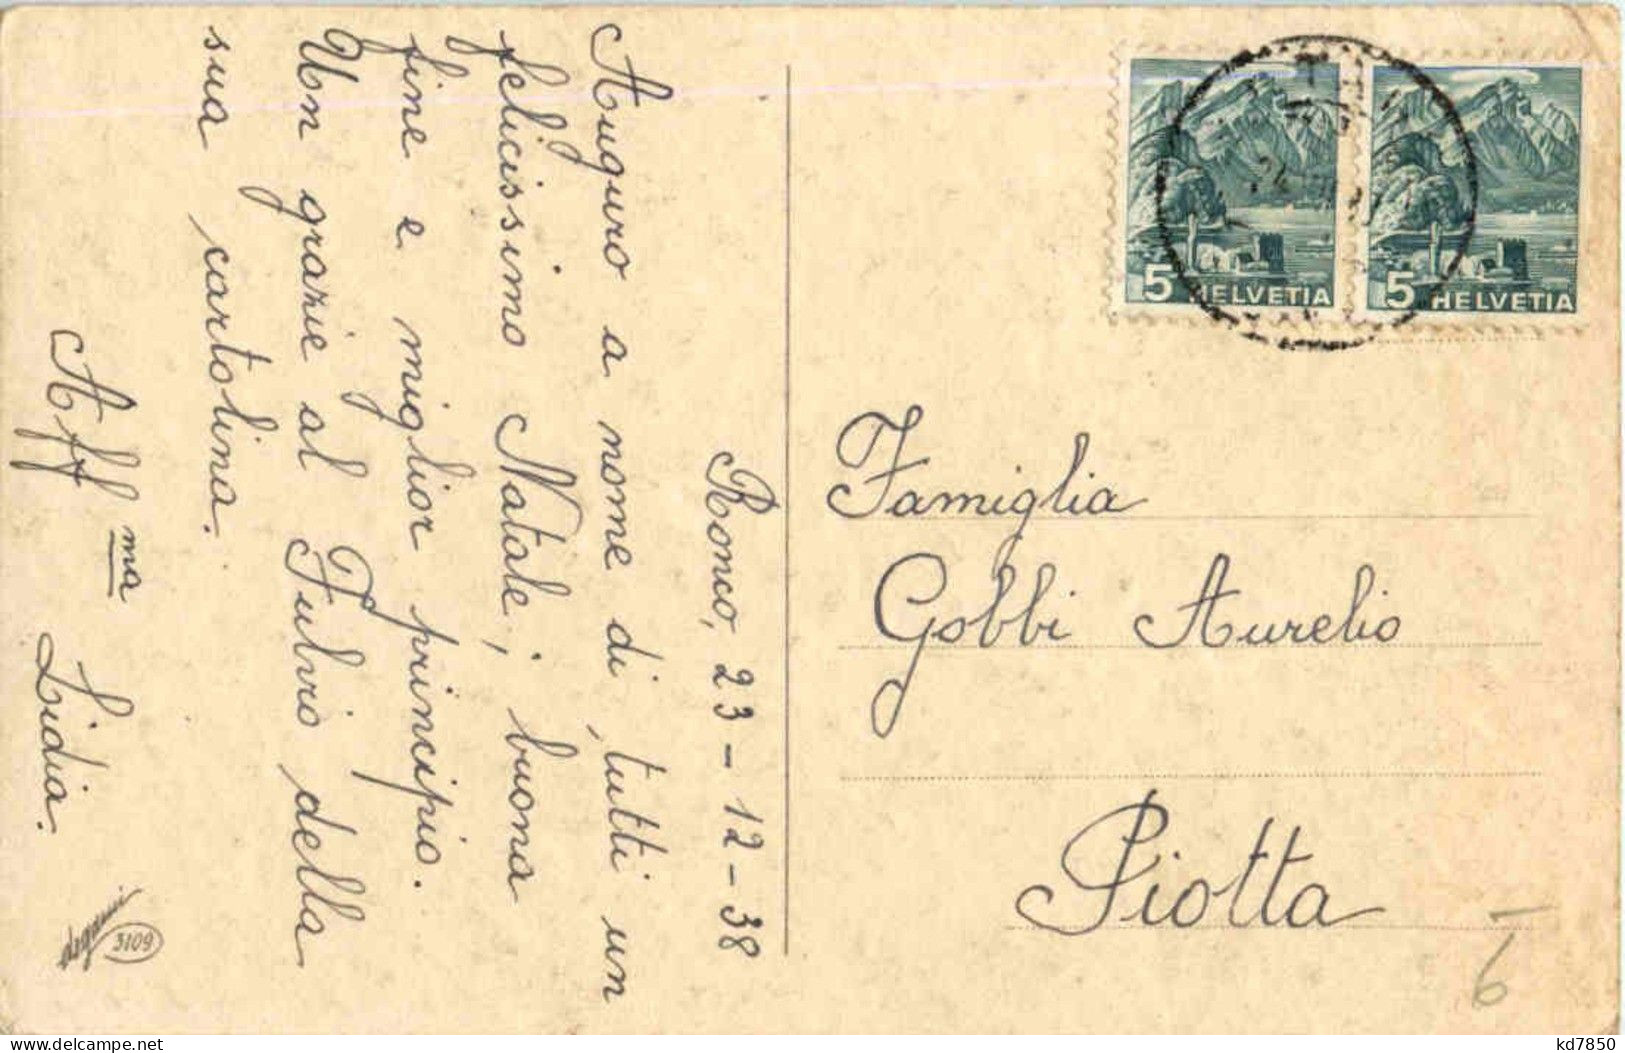 Ronco, 23-12-38
Auguro a nome di tutti un
felicissimo Natale; buona
fine e miglior principio.
Un grazie al Fulvio della
sua cartolina.
Aff ma Lidia.
degami
3109
5 HELVETIA
5 HELVETIA
Famiglia
Gobbi Aurelio
Piotta
6
kd7850